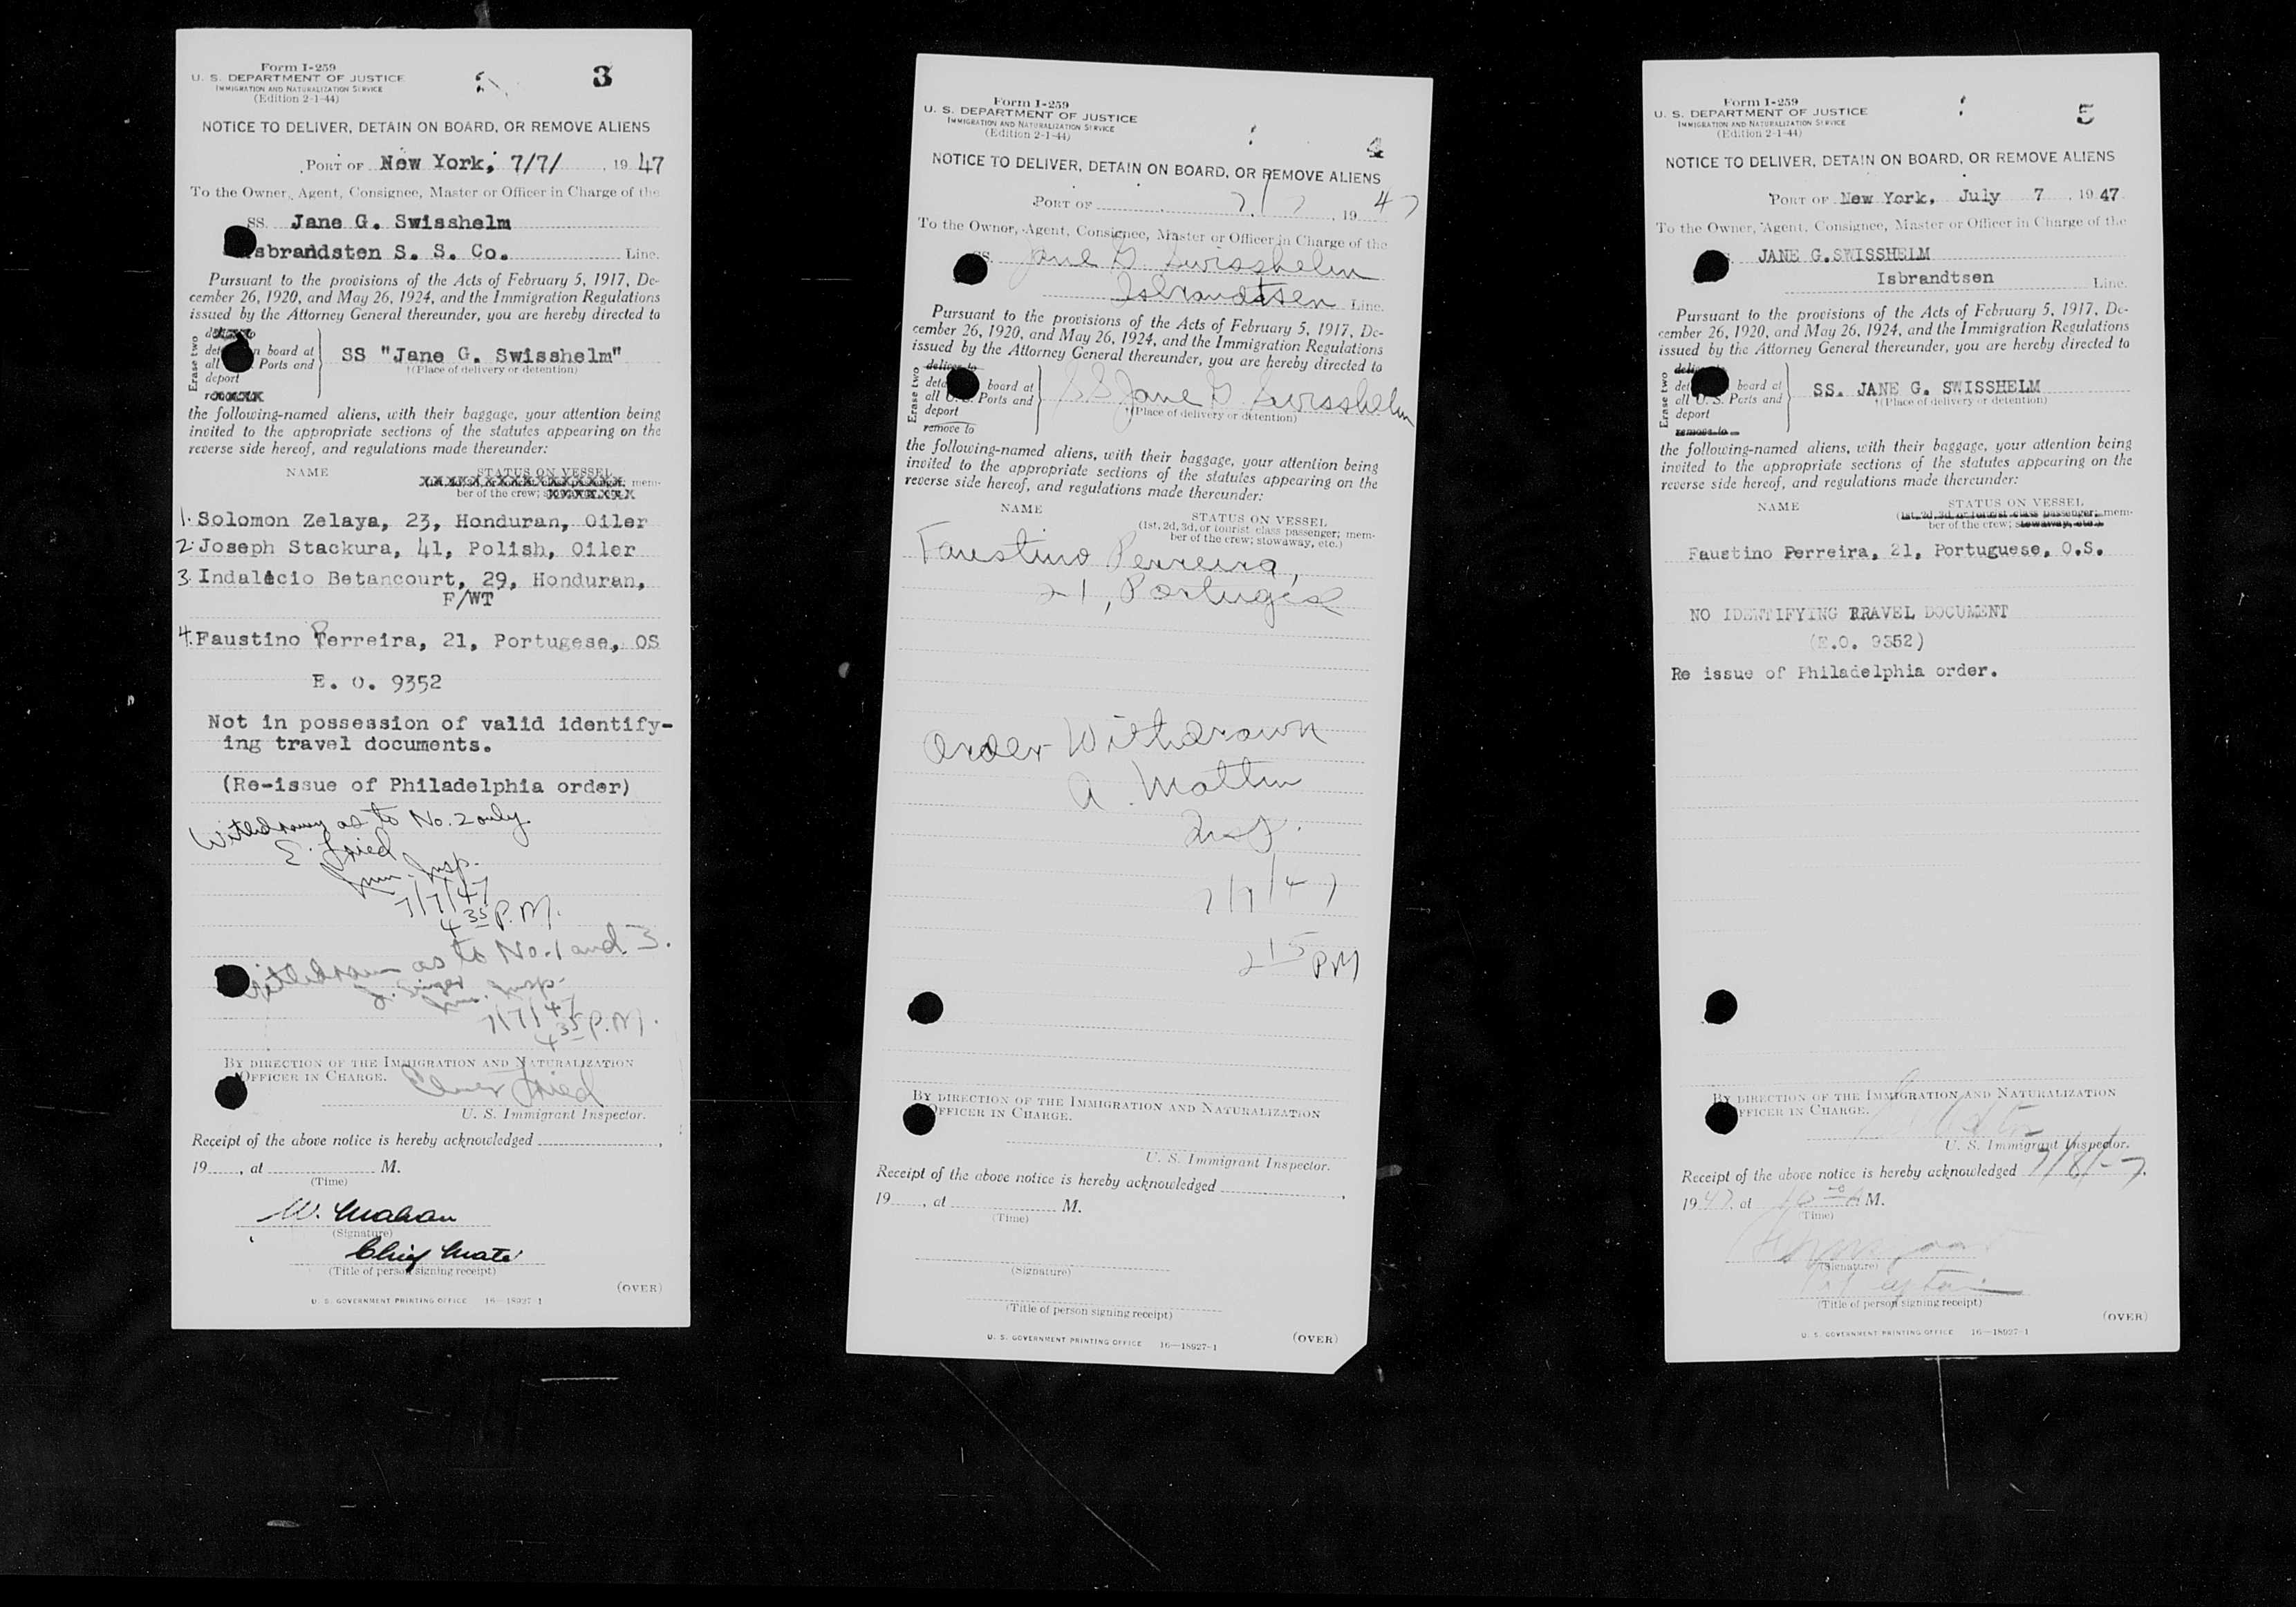 Form I-259
U. S. DEPARTMENT OF JUSTICE
IMMIGRATION AND NATURALIZATION SERVICE
(Edition 2-1-44)
3
NOTICE TO DELIVER, DETAIN ON BOARD, OR REMOVE ALIENS
PORT OF New York, 7/7/, 19 47
To the Owner, Agent, Consignee, Master or Officer in Charge of the
SS. Jane G. Swisshelm
sbrandsten S. S. Co. Line.
Pursuant to the provisions of the Acts of February 5, 1917, De-
cember 26, 1920, and May 26, 1924, and the Immigration Regulations
issued by the Attorney General thereunder, you are hereby directed to
Erase two
board at
all Ports and
deport
SS "Jane G. Swisshelm"
†(Place of delivery or detention)
the following-named aliens, with their baggage, your attention being
invited to the appropriate sections of the statutes appearing on the
reverse side hereof, and regulations made thereunder:
NAME STATUS ON VESSEL
mem-
ber of the crew;
1. Solomon Zelaya, 23, Honduran, Oiler
2. Joseph Stackura, 41, Polish, Oiler
3. Indalecio Betancourt, 29, Honduran,
F/WT
4. Faustino Perreira, 21, Portugese, OS
E. O. 9352
Not in possession of valid identify-
ing travel documents.
(Re-issue of Philadelphia order)
Withdrawn as to No. 2 only.
E. Fried
Imm. Insp.
7/7/47
4 35 P.M.
Withdrawn as to No. 1 and 3.
Imm. Insp.
7/7/47
4 35 P.M.
BY DIRECTION OF THE IMMIGRATION AND NATURALIZATION
OFFICER IN CHARGE.
Elmer Fried
U. S. Immigrant Inspector.
Receipt of the above notice is hereby acknowledged
19, at M.
(Time)
W. Mahan
(Signature)
Chief Mate
(Title of person signing receipt)
(OVER)
U. S. GOVERNMENT PRINTING OFFICE 16—18927-1
Form I-259
U. S. DEPARTMENT OF JUSTICE
IMMIGRATION AND NATURALIZATION SERVICE
(Edition 2-1-44)
4
NOTICE TO DELIVER, DETAIN ON BOARD, OR REMOVE ALIENS
PORT OF 7/7, 19 47
To the Owner, Agent, Consignee, Master or Officer in Charge of the
Jane G Swisshelm
Isbrandtsen Line.
Pursuant to the provisions of the Acts of February 5, 1917, De-
cember 26, 1920, and May 26, 1924, and the Immigration Regulations
issued by the Attorney General thereunder, you are hereby directed to
Erase two
deliver to
board at
all U. S. Ports and
deport
remove to
SS Jane G Swisshelm
†(Place of delivery or detention)
the following-named aliens, with their baggage, your attention being
invited to the appropriate sections of the statutes appearing on the
reverse side hereof, and regulations made thereunder:
NAME STATUS ON VESSEL
(1st, 2d, 3d, or tourist class passenger; mem-
ber of the crew; stowaway, etc.)
Faustino Perreira,
21,
Order Withdrawn
7/7/47
2 15 PM
BY DIRECTION OF THE IMMIGRATION AND NATURALIZATION
OFFICER IN CHARGE.
U. S. Immigrant Inspector.
Receipt of the above notice is hereby acknowledged
19, at M.
(Time)
(Signature)
(Title of person signing receipt)
(OVER)
U. S. GOVERNMENT PRINTING OFFICE 16—18927-1
Form I-259
U. S. DEPARTMENT OF JUSTICE
IMMIGRATION AND NATURALIZATION SERVICE
(Edition 2-1-44)
5
NOTICE TO DELIVER, DETAIN ON BOARD, OR REMOVE ALIENS
PORT OF New York, July 7, 19 47
To the Owner, Agent, Consignee, Master or Officer in Charge of the
JANE G.SWISSHELM
Isbrandtsen Line.
Pursuant to the provisions of the Acts of February 5, 1917, De-
cember 26, 1920, and May 26, 1924, and the Immigration Regulations
issued by the Attorney General thereunder, you are hereby directed to
Erase two
board at
all U. S. Ports and
deport
remove to
SS. JANE G. SWISSHELM
†(Place of delivery or detention)
the following-named aliens, with their baggage, your attention being
invited to the appropriate sections of the statutes appearing on the
reverse side hereof, and regulations made thereunder:
NAME STATUS ON VESSEL
(1st, 2d, 3d, or tourist class passenger; mem-
ber of the crew; stowaway, etc.)
Faustino Perreira, 21, Portuguese, O.S.
NO IDENTIFYING RRAVEL DOCUMENT
(E.O. 9352)
Re issue of Philadelphia order.
BY DIRECTION OF THE IMMIGRATION AND NATURALIZATION
OFFICER IN CHARGE.
U. S. Immigrant Inspector.
Receipt of the above notice is hereby acknowledged
19 47, at M.
(Time)
(Signature)
(Title of person signing receipt)
(OVER)
U. S. GOVERNMENT PRINTING OFFICE 16—18927-1